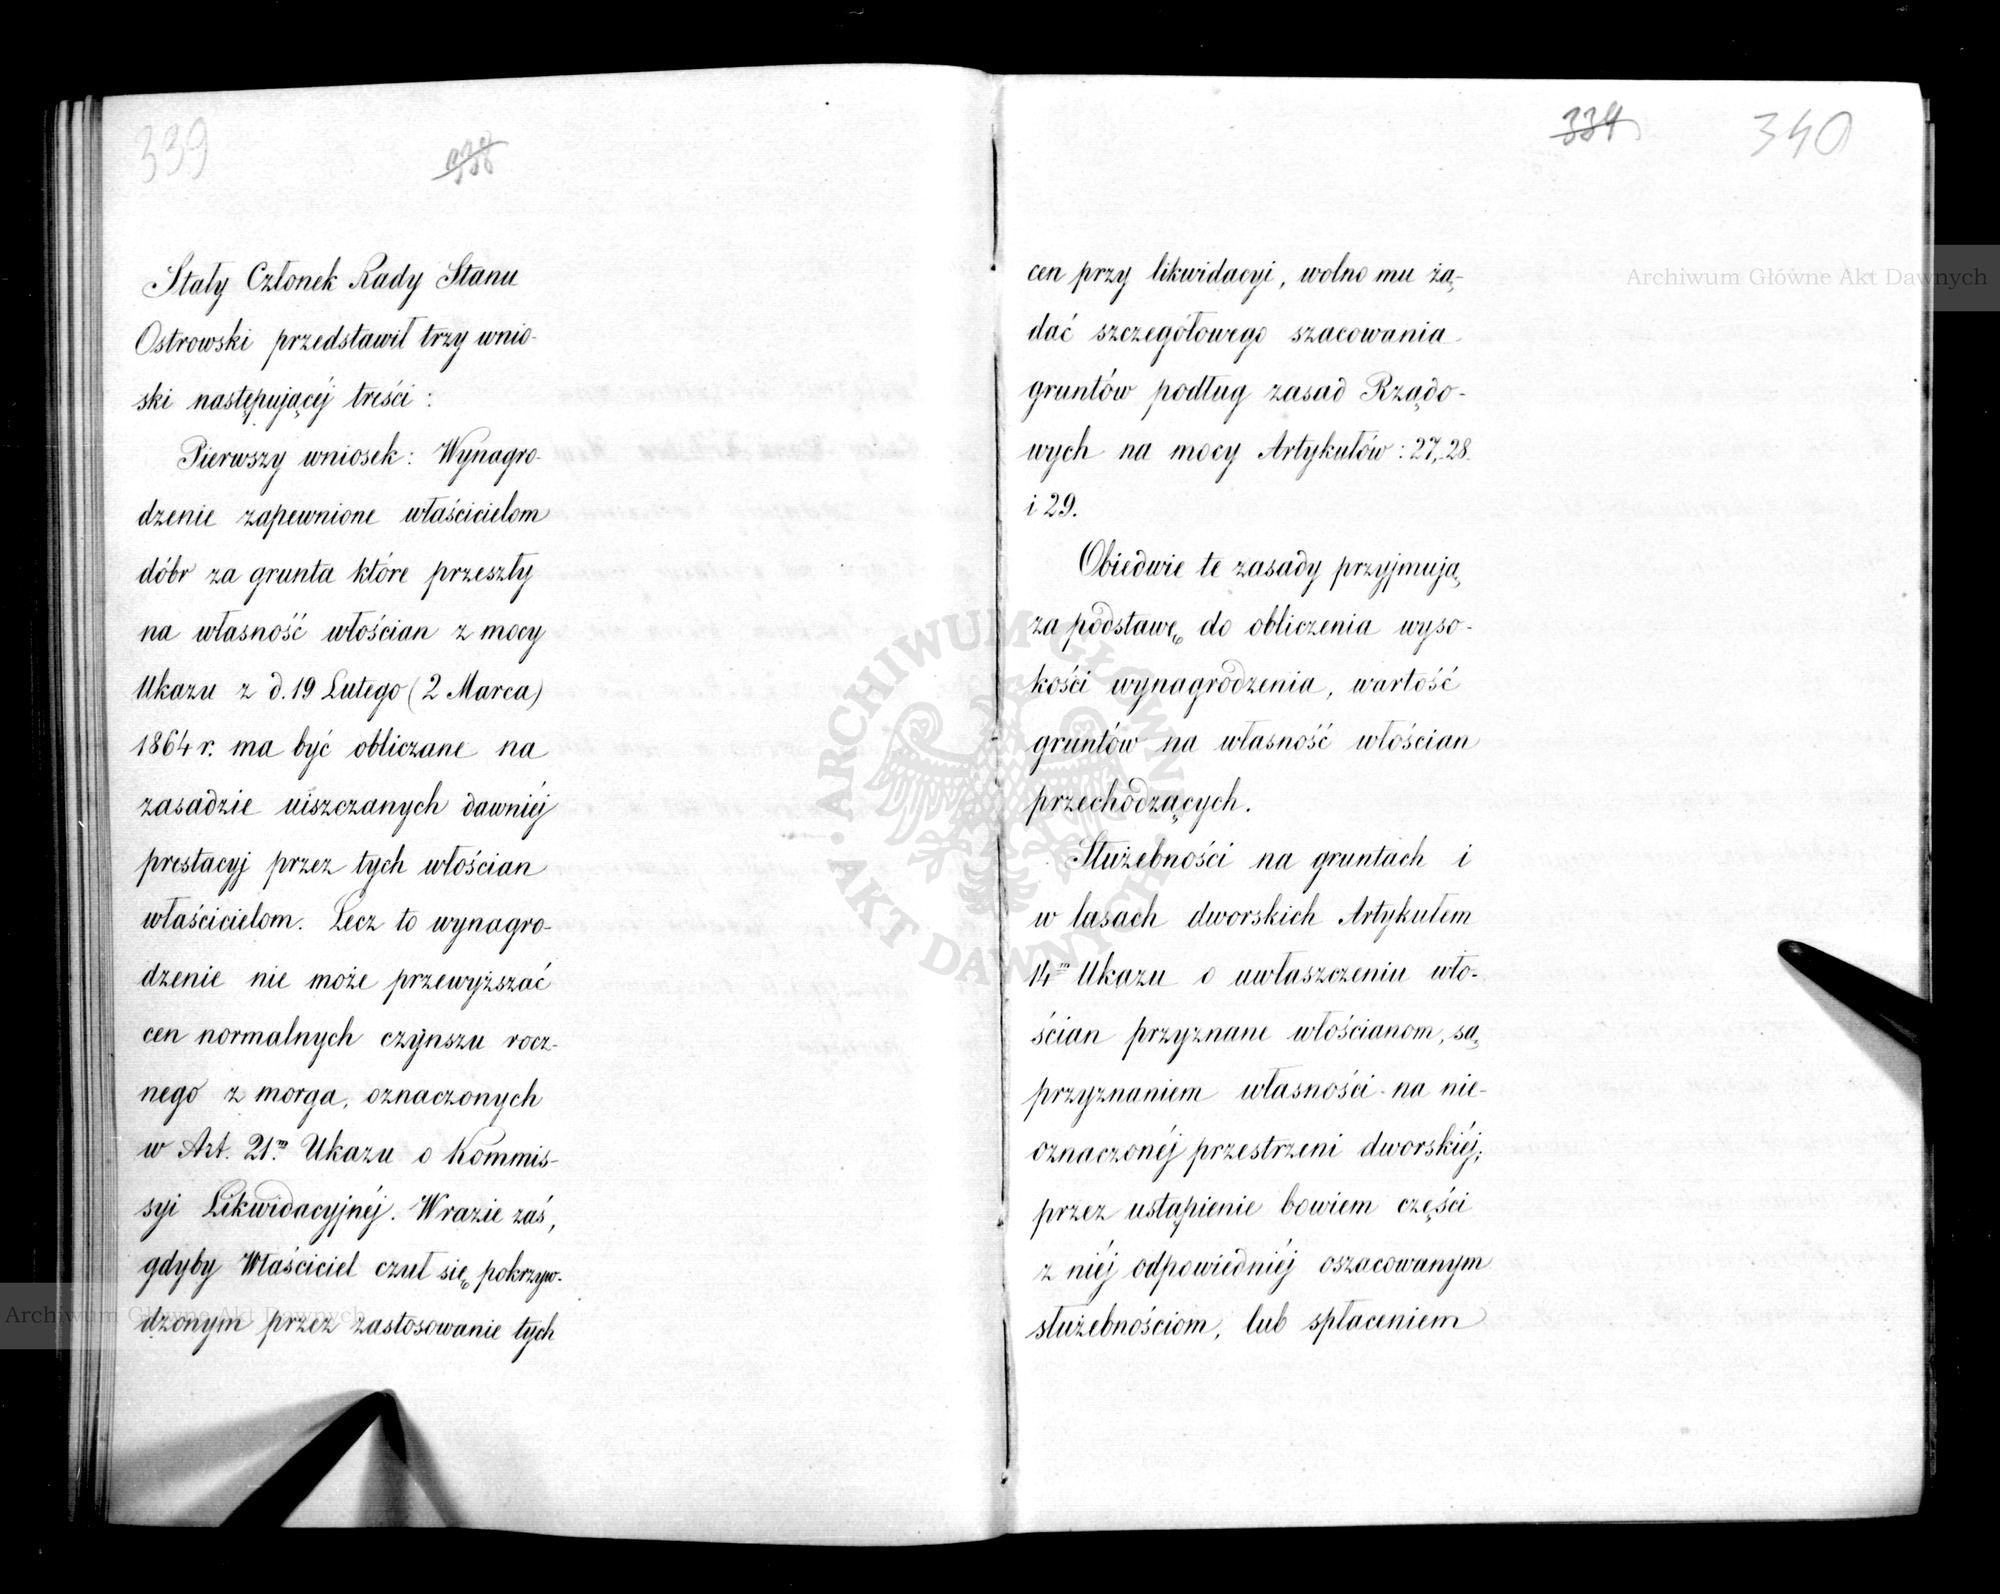 339
Stały Członek Rady Stanu
Ostrowski przedstawił trzy wnio-
ski następującéj treści :
Pierwszy wniosek : Wynagro-
dzenie zapewnione właścicielom
dóbr za grunta które przeszły
na własność włościan z mocy
Ukazu z d. 19 Lutego (2 Marca)
1864 r. ma być obliczane na
zasadzie uiszczanych dawniéj
prestacyj przez tych włościan
właścicielom. Lecz to wynagro-
dzenie nie może przewyższać
cen normalnych czynszu rocz-
nego z morga, oznaczonych
w Art. 21m Ukazu o Kommis-
syi Likwidacyjnéj. Wrazie zaś,
gdyby Właściciel czuł się pokrzyw-
dzonym przez zastosowanie tych
334 340
cen przy likwidacyi, wolno mu żą-
dać szczegółowego szacowania
gruntów podług zasad Rządo-
wych na mocy Artykułów : 27, 28
i 29.
Obiedwie te zasady przyjmują
za podstawę do obliczenia wyso-
kości wynagrodzenia, wartość
gruntów na własność włościan
przechodzących.
Służebności na gruntach i
w lasach dworskich Artykułem
14m Ukazu o uwłaszczeniu wło-
ścian przyznane włościanom, są
przyznaniem własności na nie-
oznaczonéj przestrzeni dworskiéj;
przez ustąpienie bowiem części
z niéj odpowiedniéj oszacowanym
służebnościom, lub spłaceniem
Archiwum Główne Akt Dawnych
Archiwum Główne Akt Dawnych
ARCHIWUM GŁÓWNE · AKT DAWNYCH ·